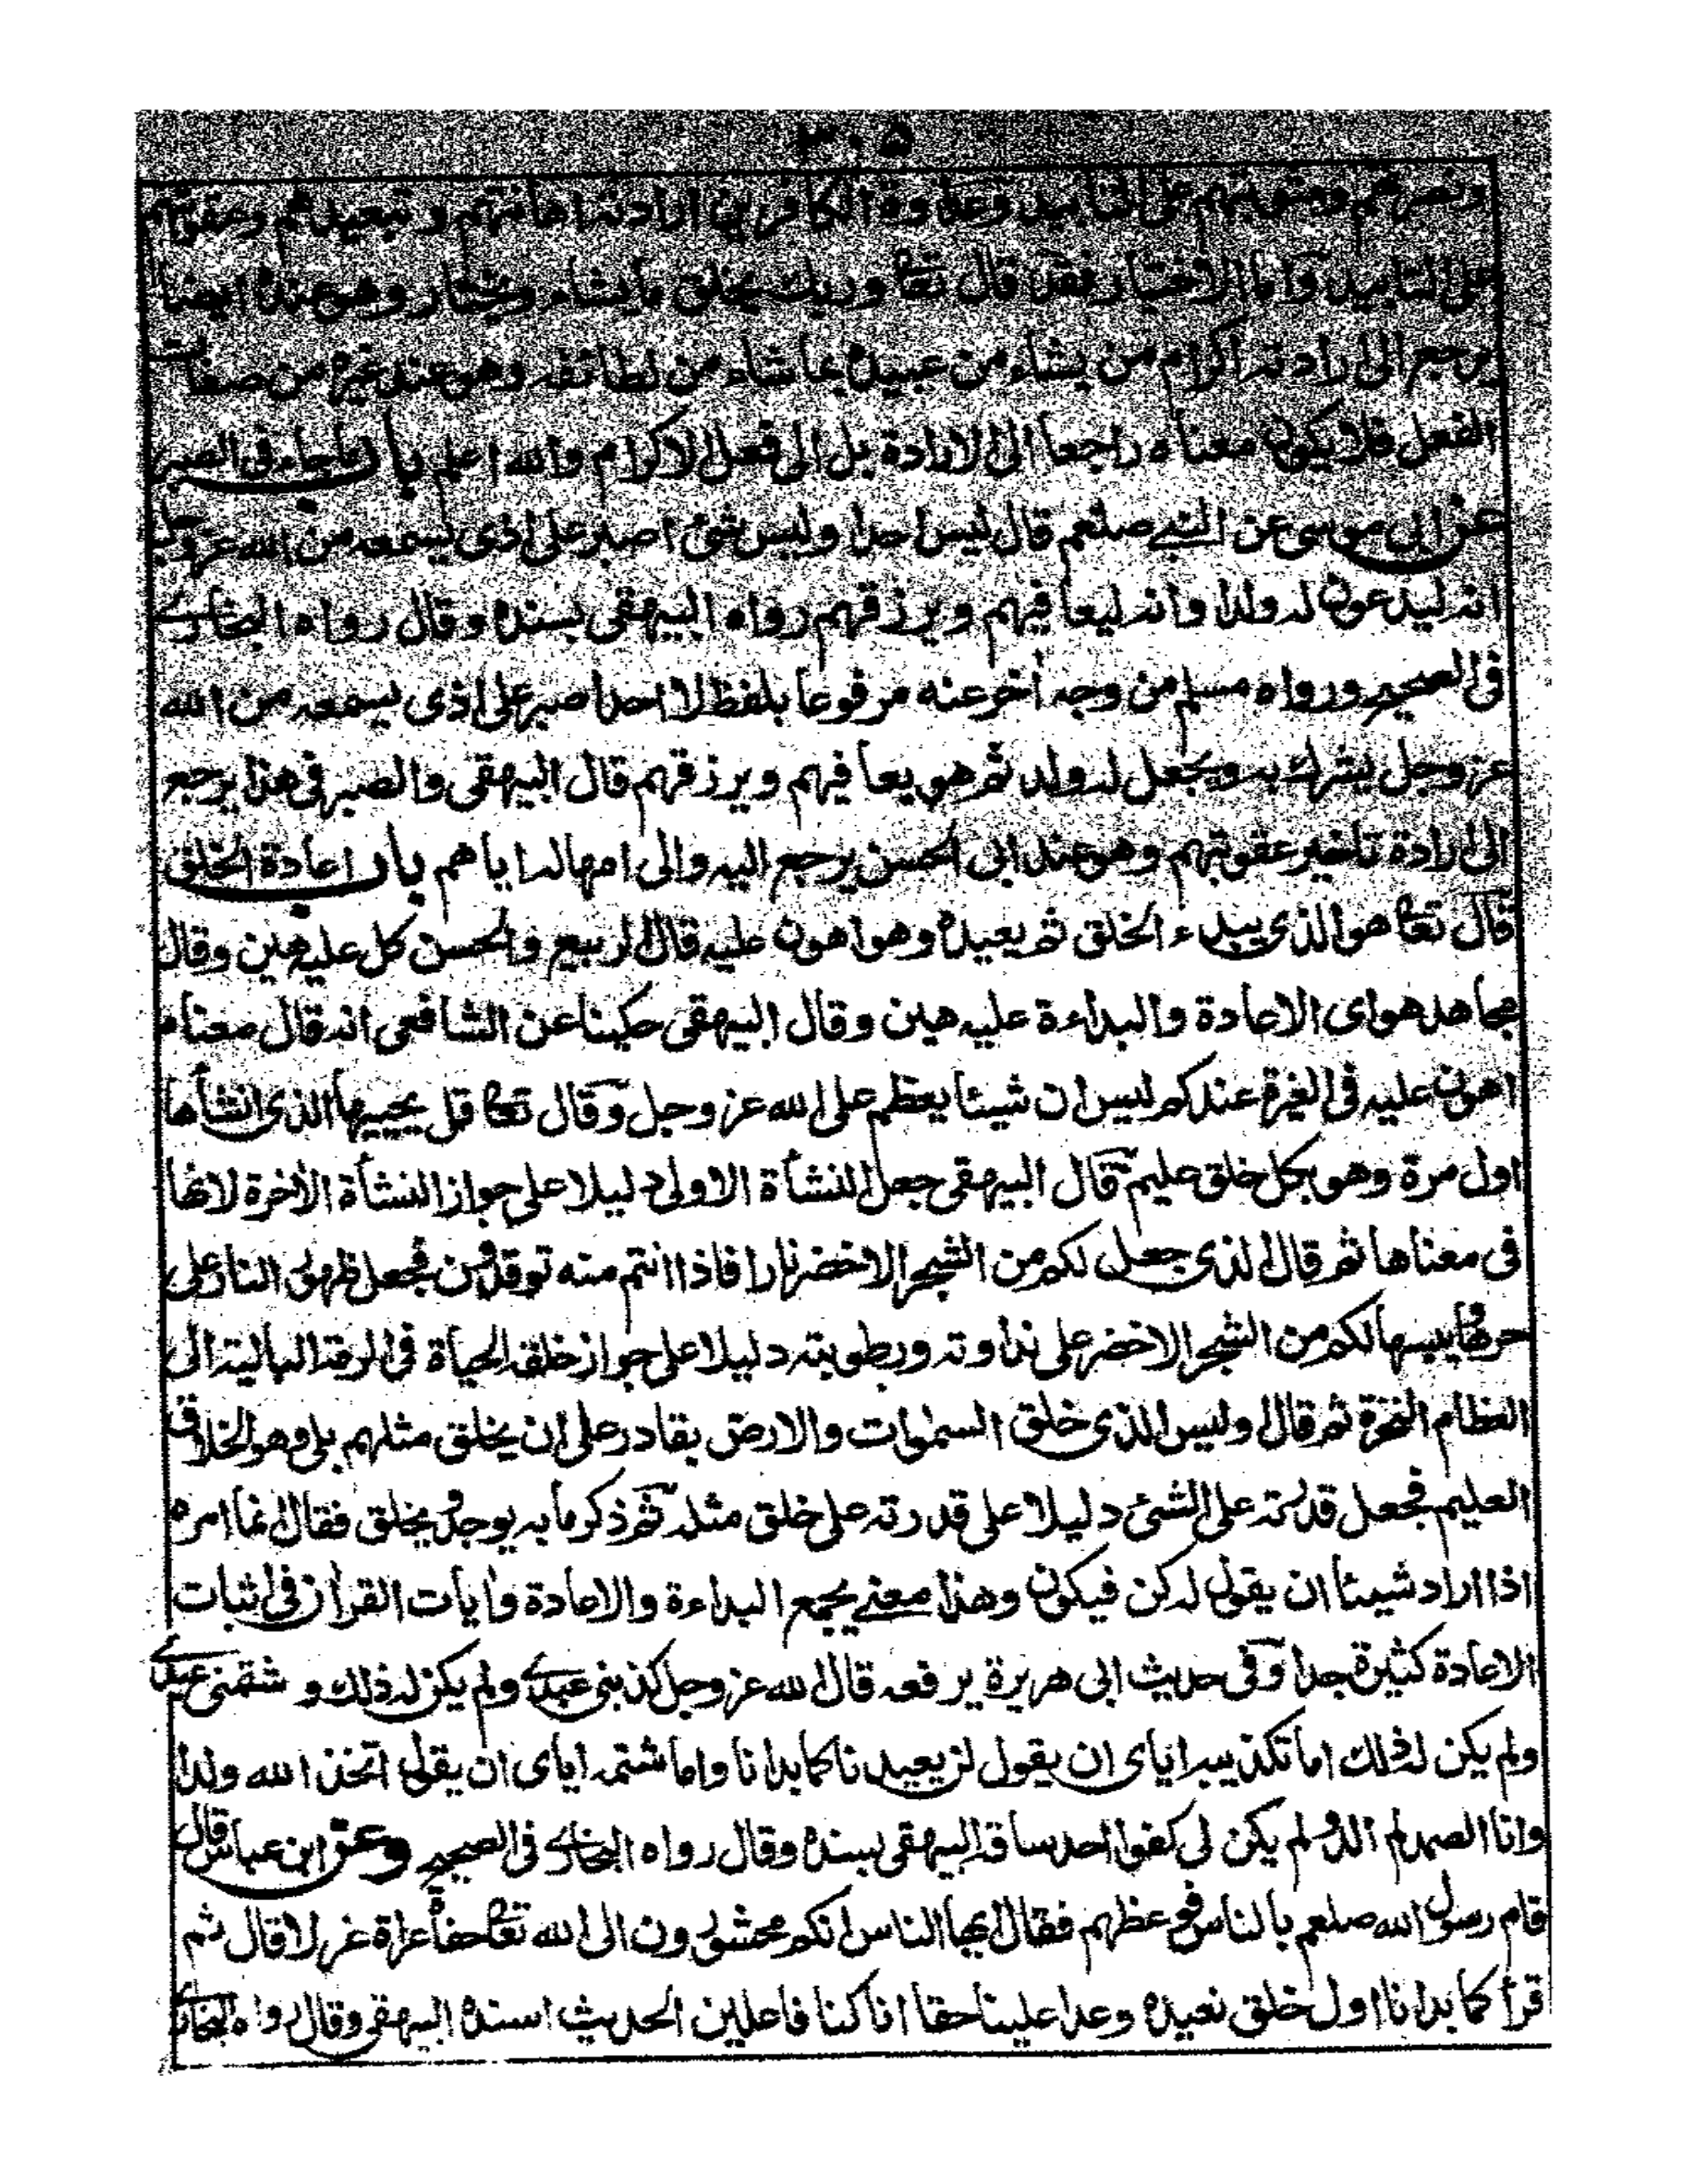 ٣٠٥
ونصرهم ومثوبتهم على التابيد وعداوة الكافرين ارادته اهانتهم وتبعيدهم وعقوبتهم
على التابيد وأما الاختيار فقد قال تعالى وربك يخلق ما يشاء ويختار وهو عنده ايضا
يرجع الى ارادته اكرام من يشاء من عبيده بما شاء من لطائفه وهو عند غيره من صفات
الفعل فلا يكون معناه راجعا الى الارادة بل الى فعل الاكرام والله اعلم باب ماجاء فى الصبر
عن ابى موسى عن النبى صلعم قال ليس احدا وليس شئ اصبر على اذى يسمعه من الله عز وجل
انه ليدعون له ولدا وانه ليعافيهم ويرزقهم رواه البيهقى بسنده وقال رواه البخارى
فى الصحيح ورواه مسلم من وجه أخر عنه مرفوعا بلفظ لا احد اصبر على اذى يسمعه من الله
عز وجل يشرك به ويجعل له ولد ثم هو يعافيهم ويرزقهم قال البيهقى والصبر فى هذا يرجع
الى ارادة تاخير عقوبتهم وهو عند ابى الحسن يرجع اليه والى امهاله اياهم باب اعادة الخلق
قال تعالى هو الذى يبدء الخلق ثم يعيده وهو اهون عليه قال الربيع والحسن كل عليه هين وقال
مجاهد هو اى الاعادة والبداءة عليه هين وقال البيهقى حكينا عن الشافعى انه قال معناه
اهون عليه فى العبرة عندكم ليس ان شيئا يعظم على الله عز وجل وقال تعالى قل يحييها الذى انشأها
اول مرة وهو بكل خلق عليم قال البيهقى جعل النشأة الاولى دليلا على جواز النشأة الأخرة لانها
فى معناها ثم قال الذى جعل لكم من الشجر الاخضر نارا فاذا انتم منه توقدون فجعل ظهور النار على
حرها ويبسها لكم من الشجر الاخضر على نداوته ورطوبته دليلا على جواز خلقه الحياة فى الرمة البالية الى
العظام النخرة ثم قال وليس الذى خلق السموات والارض بقادر على ان يخلق مثلهم بلى وهو الخلاق
العليم فجعل قدرته على الشئ دليلا على قدرته على خلق مثله ثم ذكر ما به يوجد ويخلق فقال انما امره
اذا اراد شيئا ان يقول له كن فيكون وهذا معنى يجمع البداءة والاعادة وأيأت القرأن فى اثبات
الاعادة كثيرة جدا وفى حديث ابى هريرة يرفعه قال الله عز وجل كذبنى عبدى ولم يكن له ذلك و شتمنى عبدى
ولم يكن له ذلك اما تكذيبه اياى ان يقول لن يعيدنا كما بدانا واما شتمه اياى ان يقول اتخذ الله ولدا
وانا الصمد لم الد ولم يكن لى كفوا احد ساقه البيهقى بسنده وقال رواه البخارى فى الصحيح وعن ابن عباس قال
قام رسول الله صلعم بالناس فوعظهم فقال ايها الناس انكم محشورون الى الله تعالى حفاة عراة غرلا قال ثم
قرأ كما بدانا اول خلق نعيده وعدا علينا حقا انا كنا فاعلين الحديث اسنده البيهقى وقال رواه البخارى